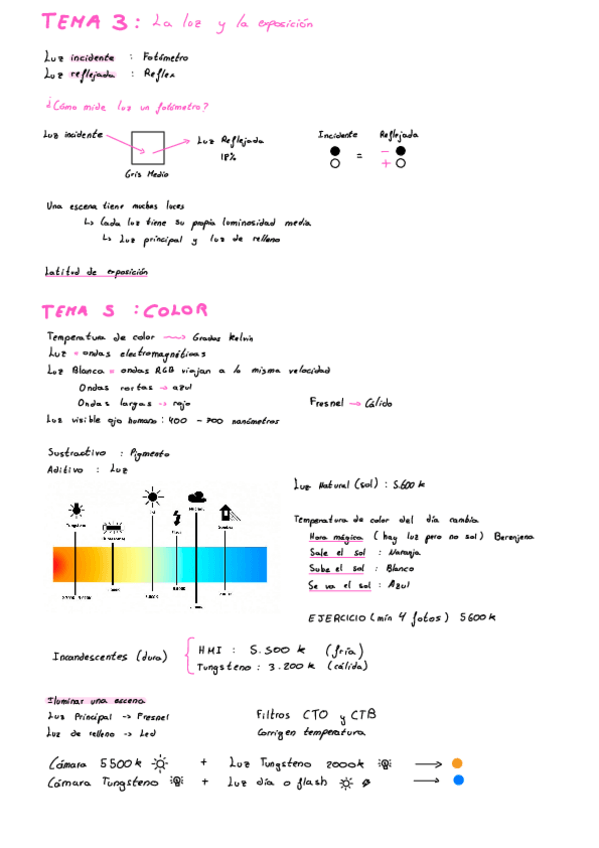 TEMA 3: La luz y la exposición
Luz incidente : Fotómetro
Luz reflejada : Reflex
¿Cómo mide luz un fotómetro?
Luz incidente
Luz Reflejada
18%
Gris Medio
Incidente Reflejada
= - +
Una escena tiene muchas luces
↳ Cada luz tiene su propia luminosidad media
↳ Luz principal y luz de relleno
Latitud de exposición
TEMA 5 : COLOR
Temperatura de color → Grados Kelvin
Luz = ondas electromagnéticas
Luz Blanca = ondas RGB viajan a la misma velocidad
Ondas cortas → azul
Ondas largas → rojo
Fresnel → Cálido
Luz visible ojo humano: 400 - 700 nanómetros
Sustractivo : Pigmento
Aditivo : Luz
Luz Natural (sol) : 5.600 k
Temperatura de color del día cambia
Hora mágica (hay luz pero no sol) Berenjena
Sale el sol : Naranja
Sube el sol : Blanco
Se va el sol : Azul
EJERCICIO (mín 4 fotos) 5600k
Incandescentes (dura)
HMI : 5.500 k (fría)
Tungsteno : 3.200 k (cálida)
Iluminar una escena
Luz Principal -> Fresnel
Luz de relleno -> Led
Filtros CTO y CTB
Corrigen temperatura
Cámara 5500k + Luz Tungsteno 2000k →
Cámara Tungsteno + Luz día o flash →